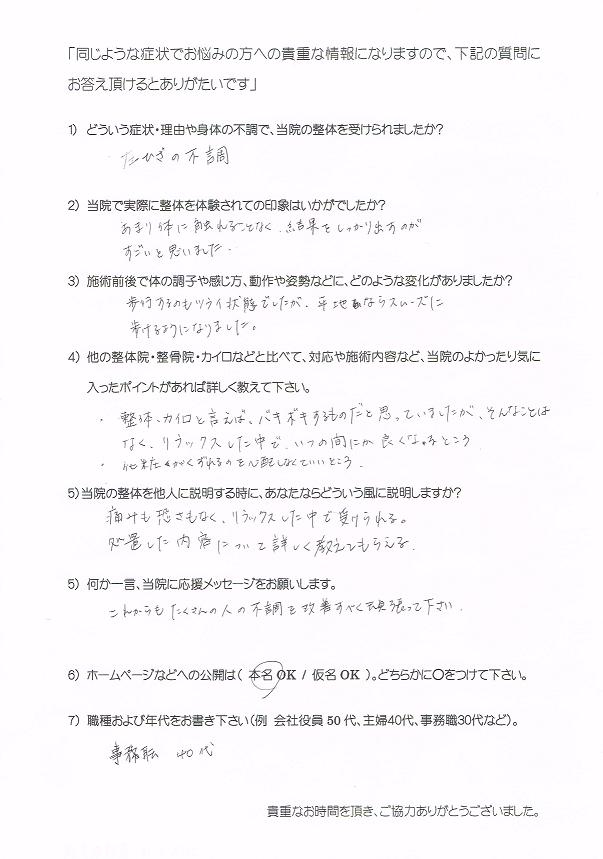 「同じような症状でお悩みの方への貴重な情報になりますので、下記の質問に
お答え頂けるとありがたいです」
1) どういう症状・理由や身体の不調で、当院の整体を受けられましたか?
ひざの不調
2) 当院で実際に整体を体験されての印象はいかがでしたか?
あまり体に触れることなく、結果をしっかり出すのが
すごいと思いました.
3) 施術前後で体の調子や感じ方、動作や姿勢などに、どのような変化がありましたか?
歩行するのもツライ状態でしたが、平地ならスムーズに
歩けるようになりました。
4) 他の整体院・整骨院・カイロなどと比べて、対応や施術内容など、当院のよかったり気に
入ったポイントがあれば詳しく教えて下さい。
・整体、カイロと言えば、バキボキするものだと思っていましたが、そんなことは
なく、リラックスした中で、いつの間にか良くなるところ
・がくずれるのを心配しなくていいところ.
5)当院の整体を他人に説明する時に、あなたならどういう風に説明しますか?
痛みも恐さもなく、リラックスした中で受けられる。
処置した内容について詳しく教えてもらえる.
5) 何か一言、当院に応援メッセージをお願いします。
これからもたくさんの人の不調を改善すべく頑張って下さい.
6) ホームページなどへの公開は( 本名 OK / 仮名 OK )。どちらかに〇をつけて下さい。
7) 職種および年代をお書き下さい(例 会社役員 50 代、主婦40代、事務職30代など)。
事務職 40代
貴重なお時間を頂き、ご協力ありがとうございました。